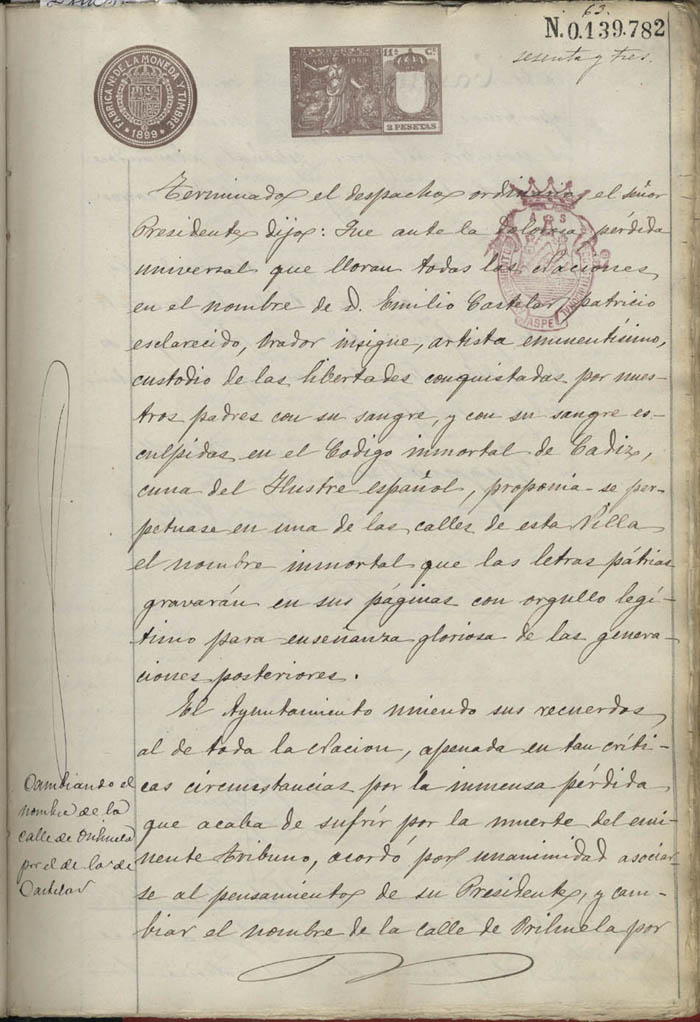 63.
N.0.139.782
sesenta y tres.
FABRICA NAL DE LA MONEDA Y TIMBRE
1899
AÑO 1899
11ª Cª
2 PESETAS
Terminado el despacho ordinario el señor
Presidente dijo: Que ante la dolorosa pérdida
universal que lloran todas las Naciones
en el nombre de D. Emilio Castelar, patricio
esclarecido, Orador insigne, artista eminentísimo,
custodio de las libertades conquistadas por nues-
tros padres con su sangre, y con su sangre es-
culpidas en el Codigo inmortal de Cadiz,
cuna del Ilustre español, proponia se per-
petuase en una de las calles de esta Villa
el nombre inmortal que las letras pátrias
gravarán en sus páginas con orgullo legí-
timo para enseñanza gloriosa de las genera-
ciones posteriores.
El Ayuntamiento uniendo sus recuerdos
al de toda la Nacion, apenada en tan críti-
cas circunstancias por la inmensa pérdida
que acaba de sufrir por la muerte del emi-
nente tribuno, acordó por unanimidad asociar-
se al pensamiento de su Presidente, y cam-
biar el nombre de la calle de Orihuela por
Cambiando el
nombre de la
calle de Orihuela
por el de la de
Castelar
ASPE